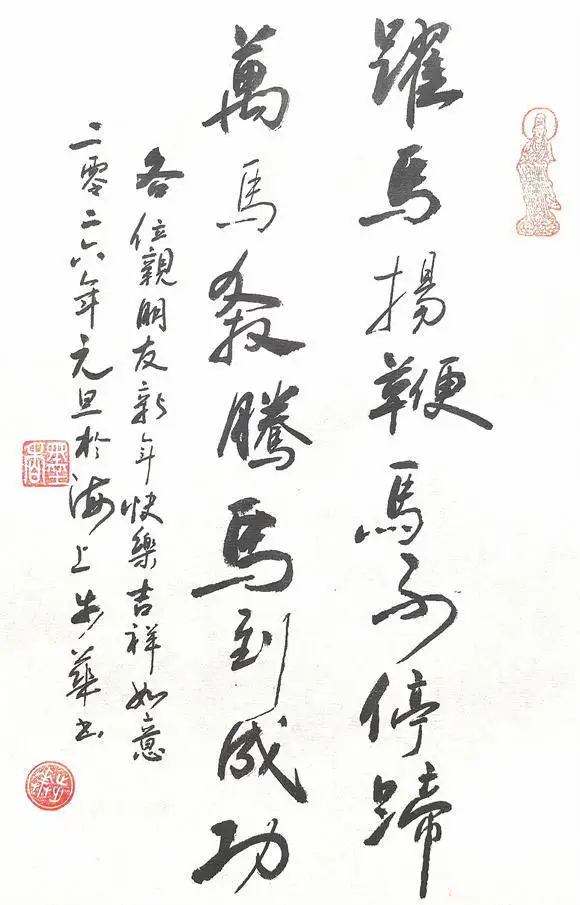 躍馬揚鞭馬不停蹄
萬馬奔騰馬到成功
各位親朋友新年快樂吉祥如意
二零二六年元旦於海上步華書
墨香